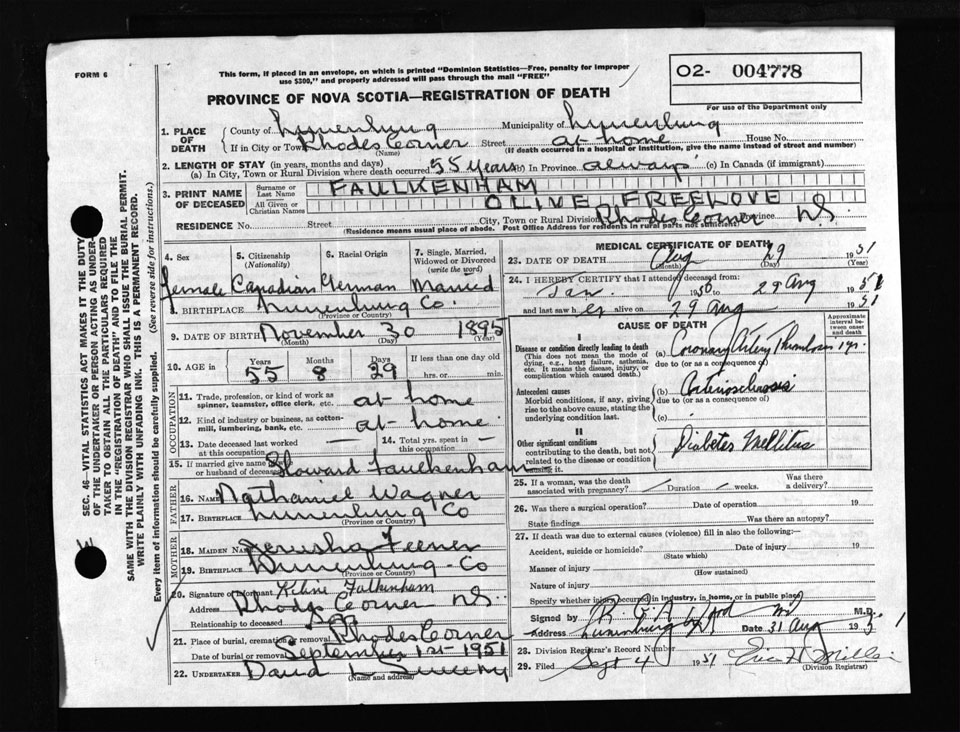 FORM 6
This form, if placed in an envelope, on which is printed "Dominion Statistics—Free, penalty for improper
use $300," and properly addressed will pass through the mail "FREE"
O2- 004778
For use of the Department only
PROVINCE OF NOVA SCOTIA—REGISTRATION OF DEATH
1. PLACE OF DEATH County of Lunenburg Municipality of Lunenburg
If in City or Town Rhodes Corner (Name) Street at home House No.
(If death occurred in a hospital or institution, give the name instead of street and number)
2. LENGTH OF STAY (in years, months and days)
(a) In City, Town or Rural Division where death occurred 55 years (b) in Province always (c) In Canada (if immigrant)
3. PRINT NAME OF DECEASED Surname or Last Name FAULKENHAM
All Given or Christian Names OLIVE FREELOVE
RESIDENCE No. Street City, Town or Rural Division Rhodes Corner Province N.S.
(Residence means usual place of abode. Post Office Address for residents in rural parts not sufficient)
4. Sex 5. Citizenship (Nationality) 6. Racial Origin 7. Single, Married, Widowed or Divorced (write the word)
female Canadian German Married
8. BIRTHPLACE Lunenburg Co.
(Province or Country)
9. DATE OF BIRTH November 30 1895
(Month) (Day) (Year)
10. AGE in Years Months Days If less than one day old
55 8 29 hrs. or min.
OCCUPATION
11. Trade, profession, or kind of work as spinner, teamster, office clerk, etc. at home
12. Kind of industry or business, as cotton-mill, lumbering, bank, etc. at home
13. Date deceased last worked at this occupation — 14. Total yrs. spent in this occupation —
15. If married give name of or husband of deceased Howard Faulkenham
FATHER
16. NAME Nathaniel Wagner
17. BIRTHPLACE Lunenburg Co
(Province or Country)
MOTHER
18. MAIDEN NAME Jerusha Feener
19. BIRTHPLACE Lunenburg Co
(Province or Country)
20. Signature of Informant Falkenham
Address Rhodes Corner N.S.
Relationship to deceased
21. Place of burial, cremation or removal Rhodes Corner
Date of burial or removal September 1st 1951
22. UNDERTAKER David
(Name and address)
MEDICAL CERTIFICATE OF DEATH
23. DATE OF DEATH Aug 29 1951
(Month) (Day) (Year)
24. I HEREBY CERTIFY that I attended deceased from
Jan. 1950 to 29 Aug 1951
and last saw her alive on 29 Aug 1951
CAUSE OF DEATH
Approximate interval between onset and death
I
Disease or condition directly leading to death (a) Coronary Artery Thrombosis 1 yr.
(This does not mean the mode of dying, e.g., heart failure, asthenia, etc. It means the disease, injury, or complication which caused death.)
due to (or as a consequence of)
Antecedent causes (b) Arteriosclerosis
Morbid conditions, if any, giving rise to the above cause, stating the underlying condition last.
due to (or as a consequence of)
(c)
II
Other significant conditions Diabetes Mellitus
contributing to the death, but not related to the disease or condition causing it.
25. If a woman, was the death associated with pregnancy? Duration weeks. Was there a delivery?
26. Was there a surgical operation? Date of operation 19
State findings Was there an autopsy?
27. If death was due to external causes (violence) fill in also the following:—
Accident, suicide or homicide? Date of injury 19
(State which)
Manner of injury
(How sustained)
Nature of injury
Specify whether injury occurred in industry, in home, or in public place
Signed by M.D.
Address Lunenburg Date 31 Aug 1951
28. Division Registrar's Record Number
29. Filed Sept 4 1951
(Division Registrar)
SEC. 46—VITAL STATISTICS ACT MAKES IT THE DUTY
OF THE UNDERTAKER OR PERSON ACTING AS UNDER-
TAKER TO OBTAIN ALL THE PARTICULARS REQUIRED
IN THE "REGISTRATION OF DEATH" AND TO FILE THE
SAME WITH THE DIVISION REGISTRAR WHO SHALL ISSUE THE BURIAL PERMIT.
WRITE PLAINLY WITH UNFADING INK. THIS IS A PERMANENT RECORD.
Every item of information should be carefully supplied. (See reverse side for instructions.)